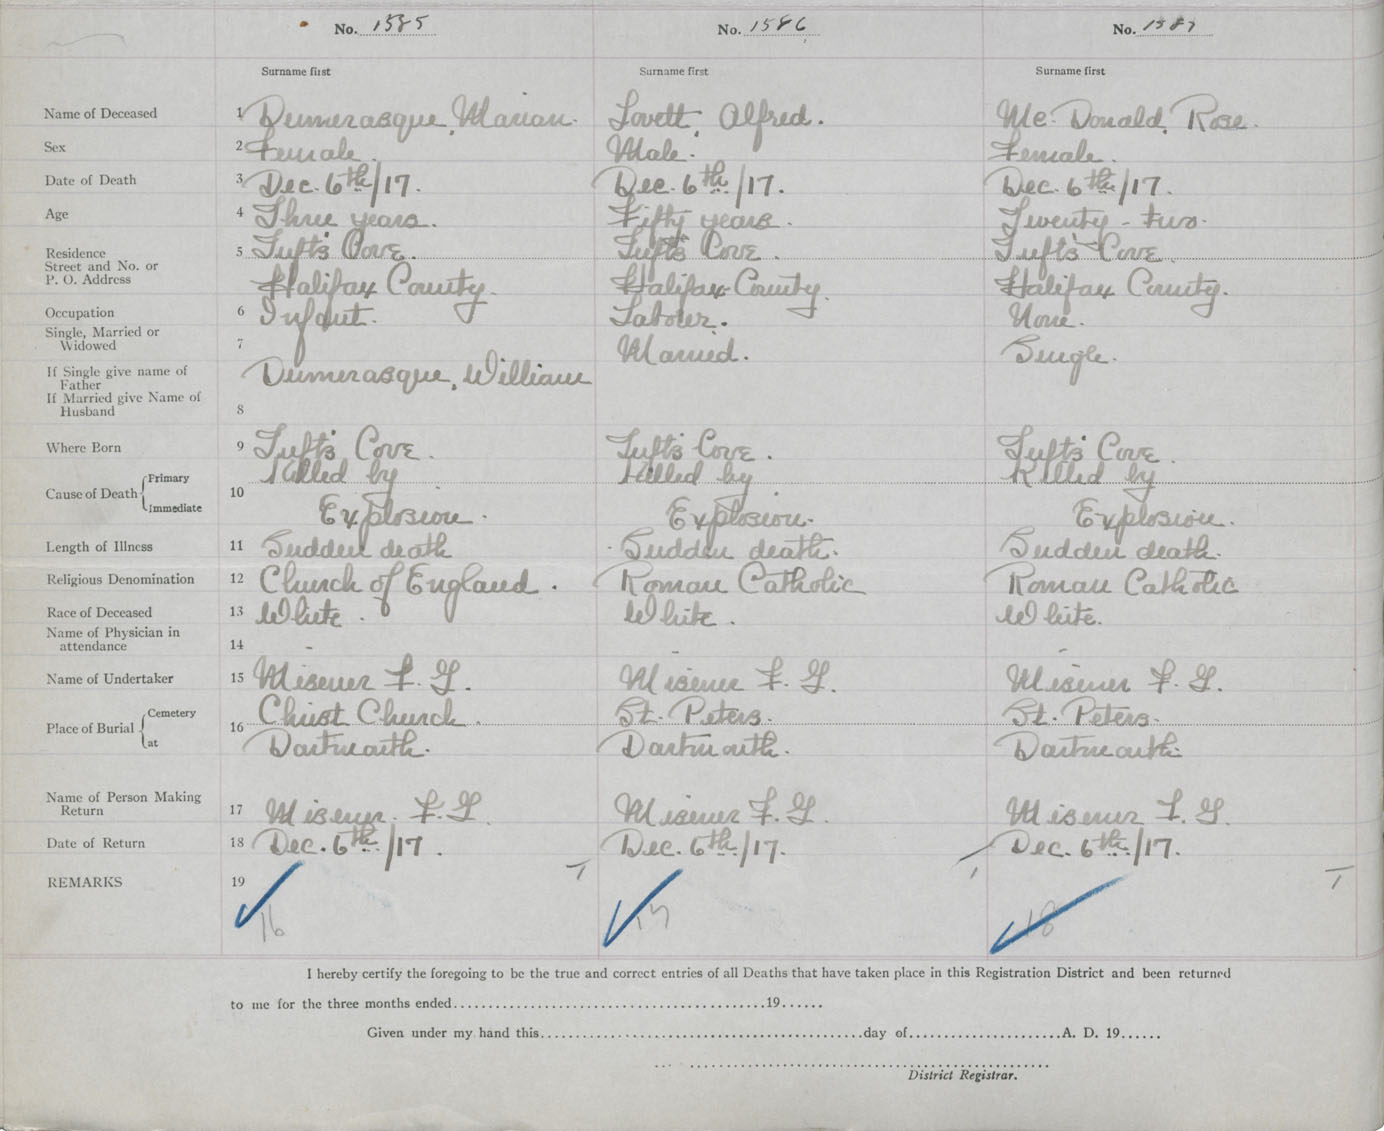 No. 1585 No. 1586 No. 1587
Surname first Surname first Surname first
Name of Deceased 1 Dumerasque, Marian. Lovett, Alfred. Mc Donald, Rose.
Sex 2 Female. Male. Female.
Date of Death 3 Dec. 6th/17. Dec. 6th/17. Dec. 6th/17.
Age 4 Three years. Fifty years. Twenty-two.
Residence 5 Tuft's Cove. Tuft's Cove. Tuft's Cove.
Street and No. or
P. O. Address Halifax County. Halifax County. Halifax County.
Occupation 6 Infant. Laborer. None.
Single, Married or
Widowed 7 Married. Single.
If Single give name of
Father Dumerasque, William
If Married give Name of
Husband 8
Where Born 9 Tuft's Cove. Tuft's Cove. Tuft's Cove.
Cause of Death Primary 10 Killed by Killed by Killed by
Immediate Explosion. Explosion. Explosion.
Length of Illness 11 Sudden death Sudden death. Sudden death.
Religious Denomination 12 Church of England. Roman Catholic Roman Catholic
Race of Deceased 13 White. White. White.
Name of Physician in
attendance 14 - - -
Name of Undertaker 15 Misener F. G. Misener F. G. Misener F. G.
Place of Burial Cemetery 16 Christ Church. St. Peters. St. Peters.
at Dartmouth. Dartmouth. Dartmouth.
Name of Person Making
Return 17 Misener. F. G. Misener F. G. Misener F. G.
Date of Return 18 Dec. 6th/17. Dec. 6th/17. Dec. 6th/17.
REMARKS 19
16 17 18
I hereby certify the foregoing to be the true and correct entries of all Deaths that have taken place in this Registration District and been returned
to me for the three months ended 19
Given under my hand this day of A. D. 19
District Registrar.